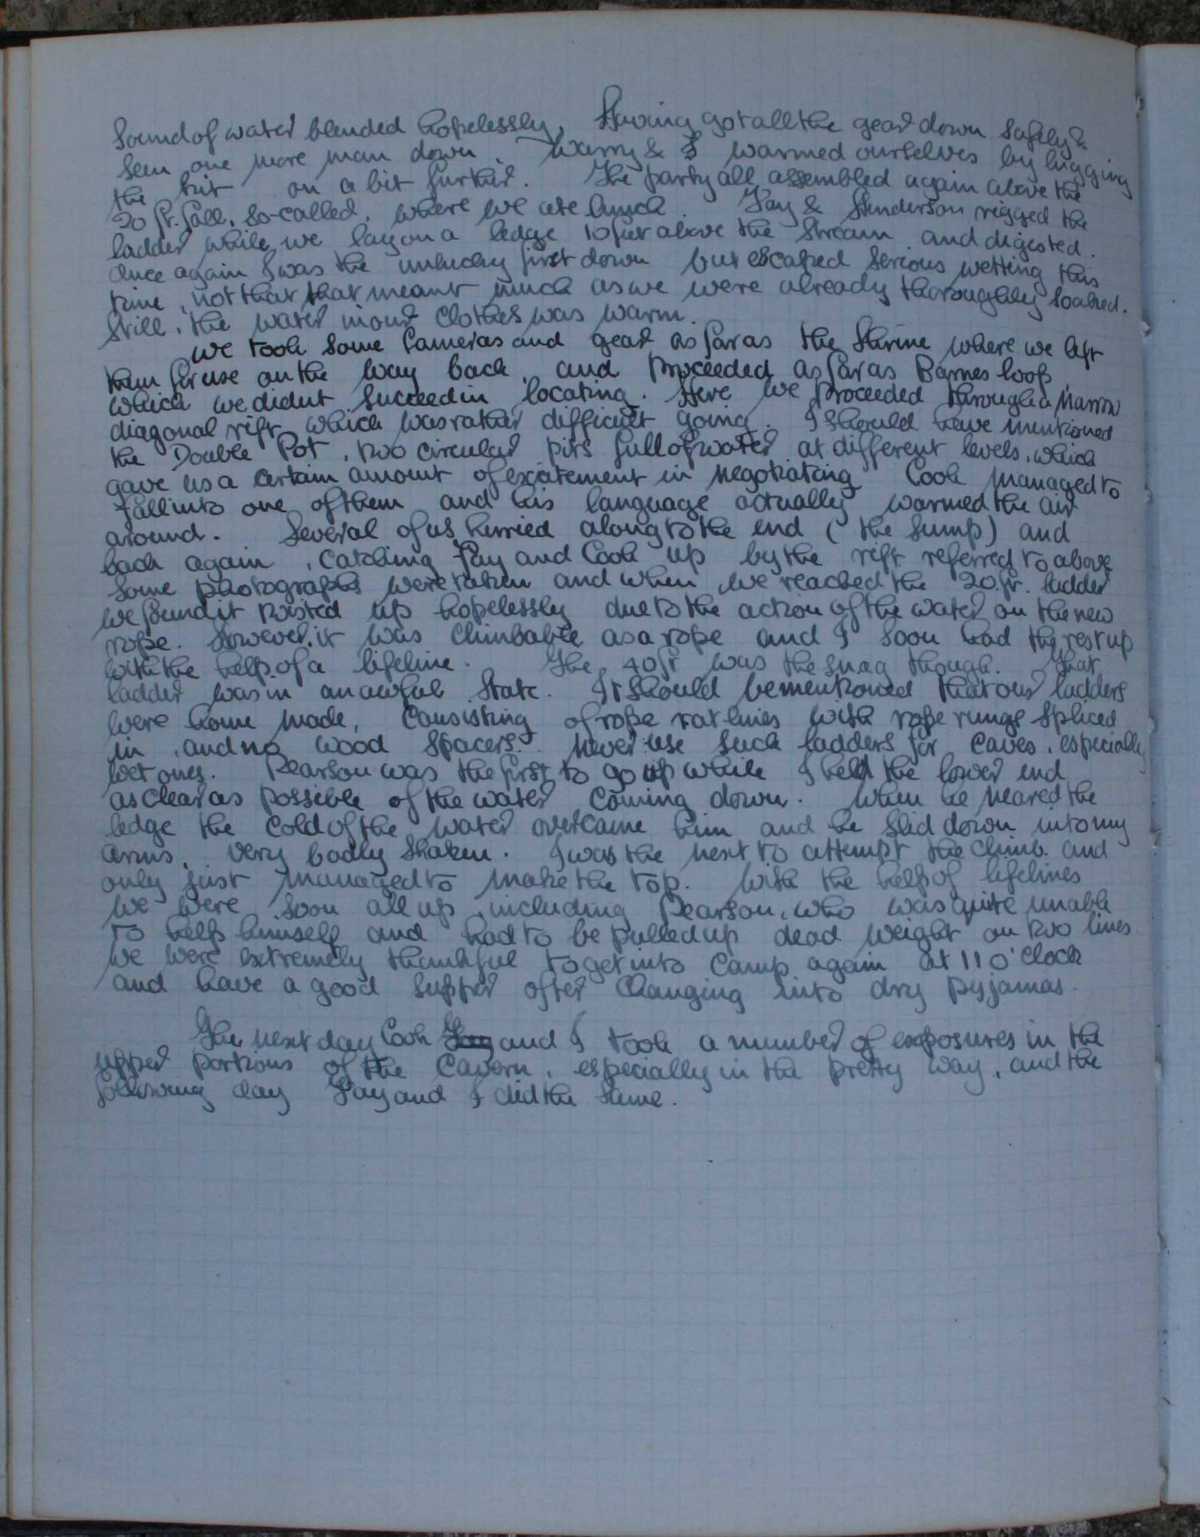 Sound of water blended hopelessly. Having got all the gear down safely &
seen one more man down. Warry & I warmed ourselves by lugging
the kit on a bit further. The party all assembled again above the
20 ft. fall, so-called, where we ate lunch. Fay & Henderson rigged the
ladder while we lay on a ledge 10 feet above the stream and digested.
Once again I was the unlucky first down but escaped serious wetting this
time, not that that meant much as we were already thoroughly soaked.
Still, the water in our clothes was warm.
We took some cameras and gear as far as the Shrine where we left
them for use on the way back, and proceeded as far as Barnes loop
which we didnt succeed in locating. Here we proceeded through a narrow
diagonal rift which was rather difficult going. I should have mentioned
the Double Pot, two circular pits full of water at different levels, which
gave us a certain amount of excitement in negotiating. Cook managed to
fall into one of them and his language actually warmed the air
around. Several of us hurried along to the end (the sump) and
back again, catching Fay and Cook up by the rift referred to above
Some photographs were taken and when we reached the 20 ft. ladder
we found it twisted up hopelessly due to the action of the water on the new
rope. However it was climbable as a rope and I soon had the rest up
with the help of a lifeline. The 40 ft was the snag though. That
ladder was in an awful state. It should be mentioned that our ladders
were home made, consisting of rope ratlines with rope rungs spliced
in, and no wood spacers. Never use such ladders for caves, especially
wet ones. Pearson was the first to go up while I held the lower end
as clear as possible of the water coming down. When he neared the
ledge the cold of the water overcame him and he slid down into my
arms, very badly shaken. I was the next to attempt the climb and
only just managed to make the top. With the help of lifelines
we were soon all up including Pearson, who was quite unable
to help himself and had to be pulled up dead weight on two lines.
We were extremely thankful to get into camp again at 11 o'clock
and have a good supper after changing into dry pyjamas.
The next day Cook and I took a number of exposures in the
upper portions of the Cavern, especially in the pretty way, and the
following day Fay and I did the same.